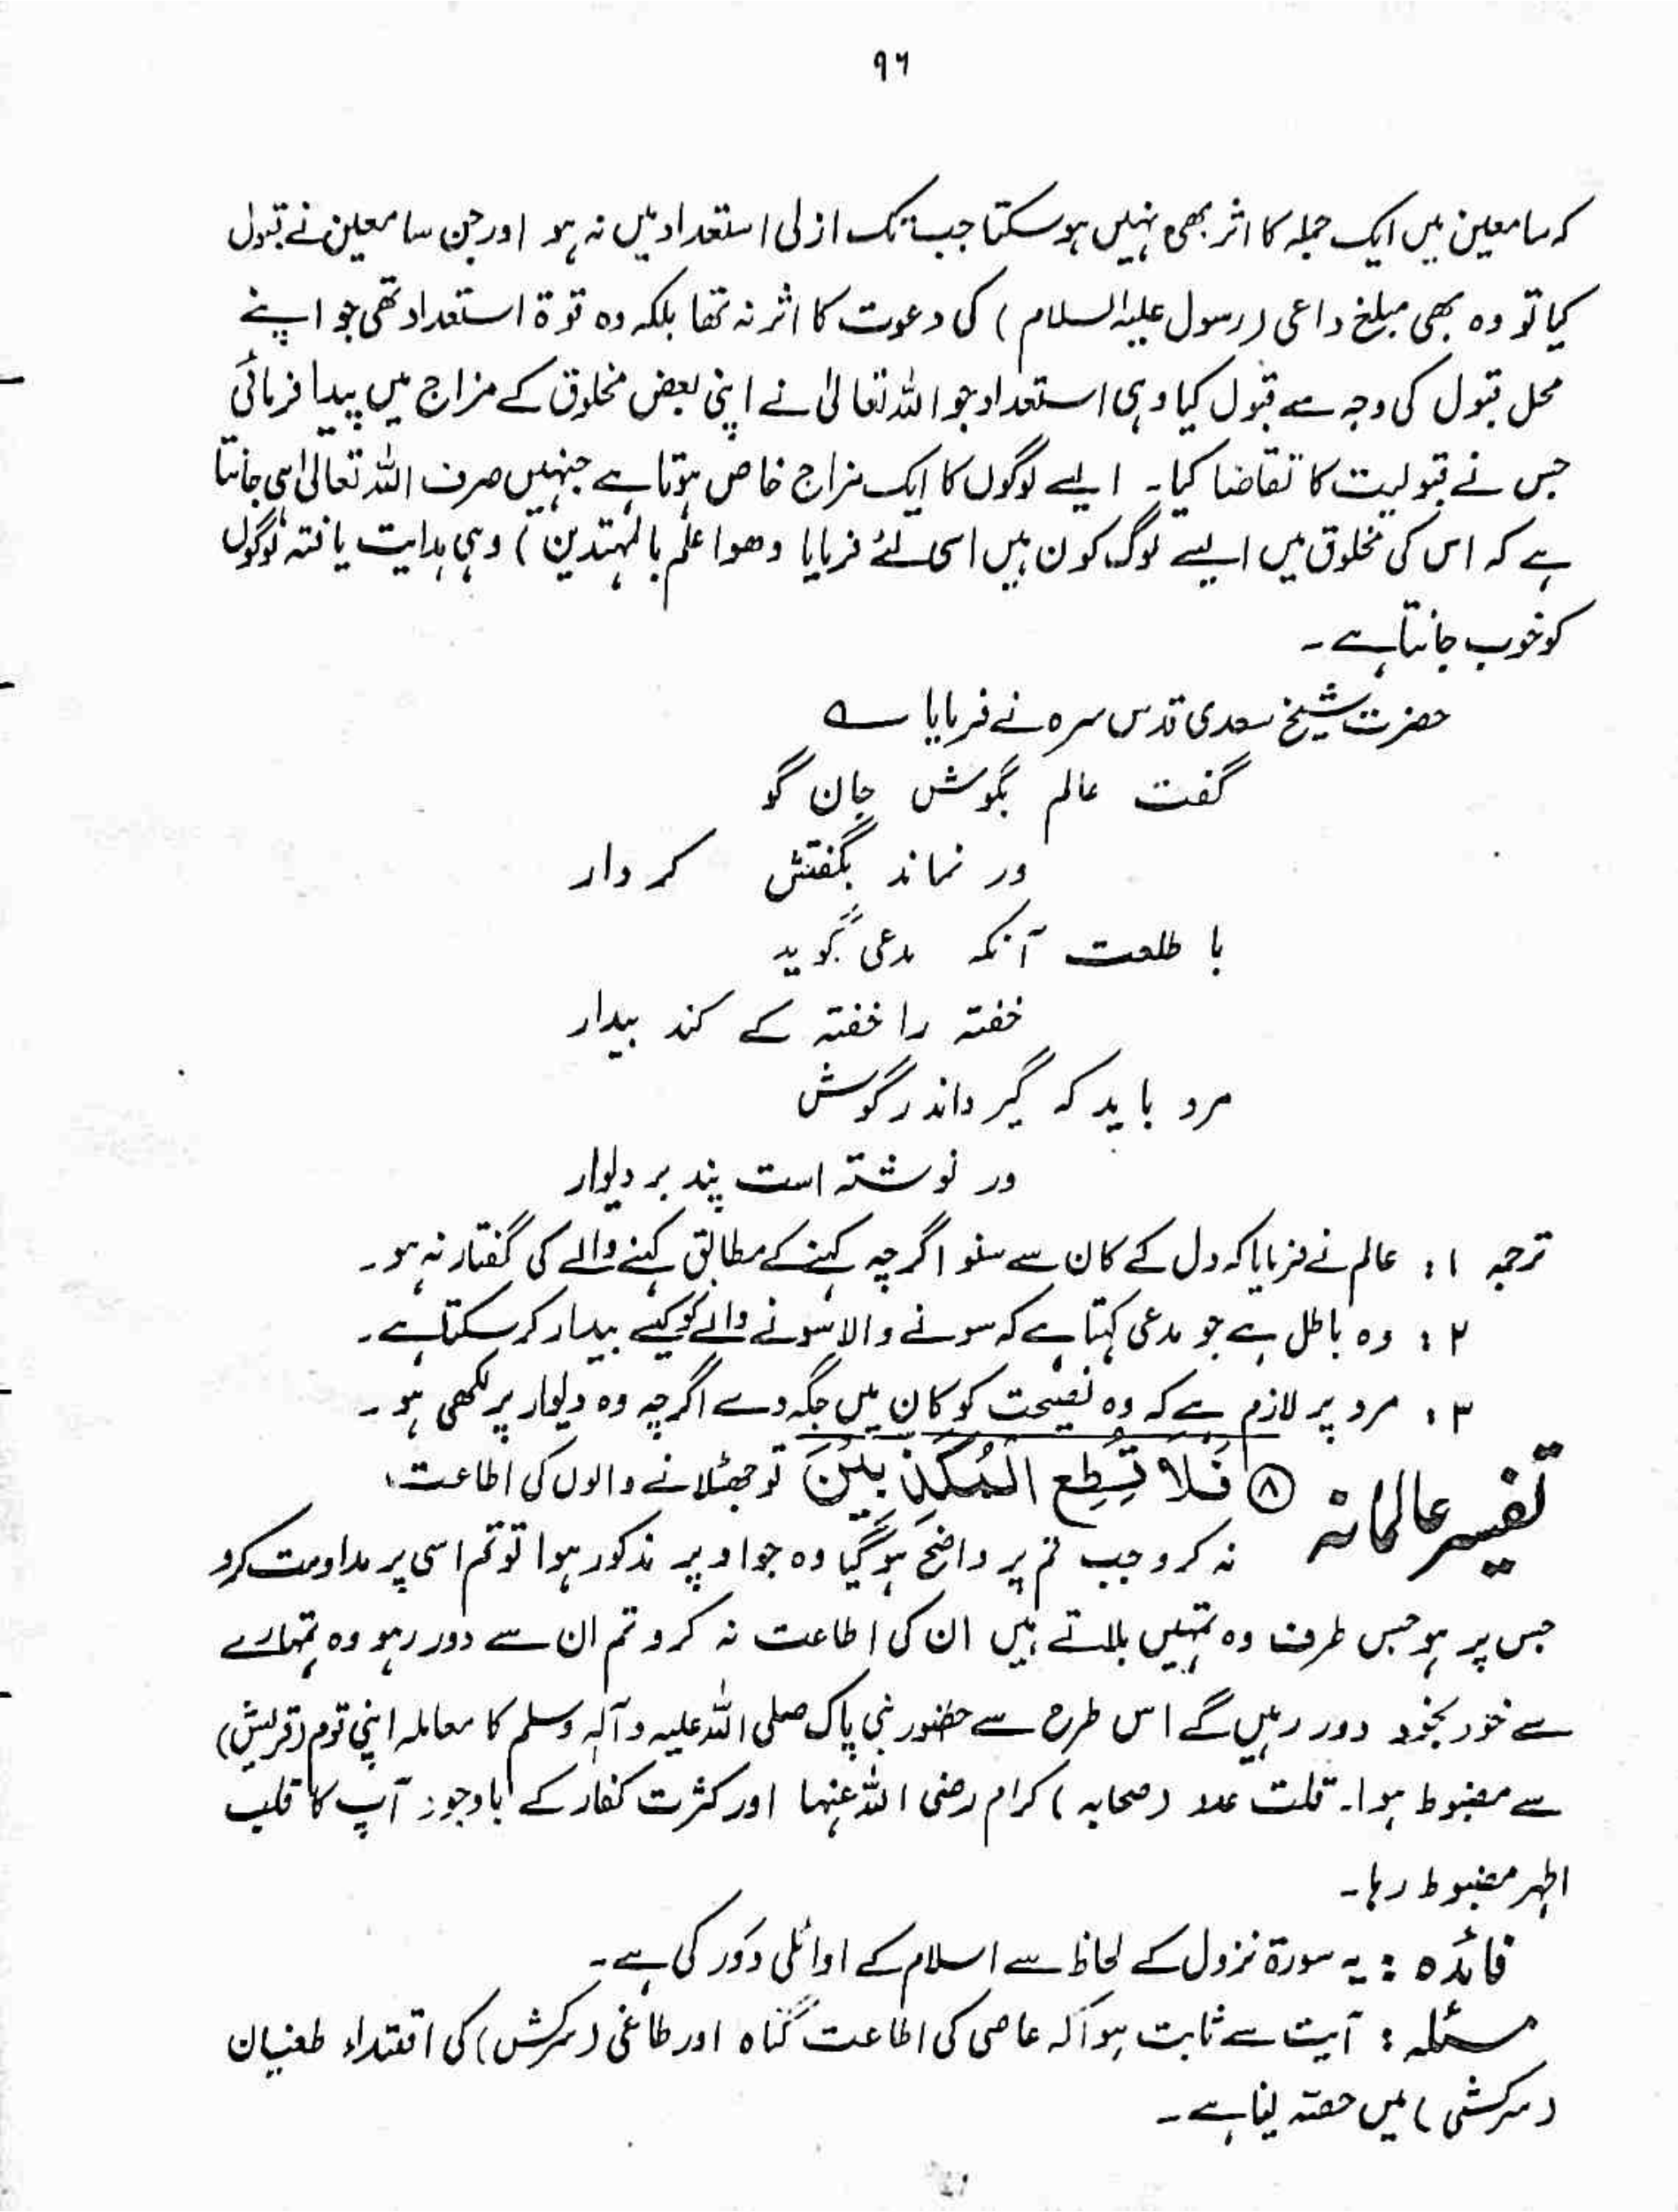 ۹۶
کہ سامعین میں ایک جملہ کا اثر بھی نہیں ہوسکتا جب تک ازلی استعداد میں نہ ہو اور جن سامعین نے قبول
کیا تو وہ بھی مبلغ داعی (رسول علیہ السلام) کی دعوت کا اثر نہ تھا بلکہ وہ قوۃ استعداد تھی جو اپنے
محل قبول کی وجہ سے قبول کیا وہی استعداد جو اللہ تعالیٰ نے اپنی بعض مخلوق کے مزاج میں پیدا فرمائی
جس نے قبولیت کا تقاضا کیا۔ ایسے لوگوں کا ایک مزاج خاص ہوتا ہے جنہیں صرف اللہ تعالیٰ ہی جانتا
ہے کہ اس کی مخلوق میں ایسے لوگ کون ہیں اسی لئے فرمایا وھوا علم بالمہتدین) وہی ہدایت یافتہ لوگوں
کو خوب جانتا ہے۔
حضرت شیخ سعدی قدس سرہ نے فرمایا ؎
گفت عالم بگوش جان گو
ور نماند بگفتش کردار
با طلعت آنکہ مدعی گوید
خفتہ را خفتہ کے کند بیدار
مرد باید کہ گیرد اندر گوش
ور نوشتہ است پند بر دیوار
ترجمہ ۱: عالم نے فرمایا کہ دل کے کان سے سنو اگرچہ کہنے کے مطابق کہنے والے کی گفتار نہ ہو۔
۲: وہ باطل ہے جو مدعی کہتا ہے کہ سونے والا سونے والے کو کیسے بیدار کرسکتا ہے۔
۳: مرد پر لازم ہے کہ وہ نصیحت کو کان میں جگہ دے اگرچہ وہ دیوار پر لکھی ہو۔
تفسیر عالمانہ ⑧ فَلَا تُطِعِ الْمُكَذِّبِيْنَ تو جھٹلانے والوں کی اطاعت
نہ کرو جب تم پر واضح ہوگیا وہ جو اوپر مذکور ہوا تو تم اسی پر مداومت کرو
جس پر ہو جس طرف وہ تمہیں بلاتے ہیں ان کی اطاعت نہ کرو تم ان سے دور رہو وہ تمہارے
سے خود بخود دور رہیں گے اس طرح سے حضور نبی پاک صلی اللہ علیہ وآلہ وسلم کا معاملہ اپنی قوم (قریش)
سے مضبوط ہوا۔ قلت عدد (صحابہ) کرام رضی اللہ عنہا اور کثرت کفار کے باوجود آپ کا قلب
اطہر مضبوط رہا۔
فائدہ: یہ سورۃ نزول کے لحاظ سے اسلام کے اوائلی دَور کی ہے۔
مسئلہ: آیت سے ثابت ہوا کہ عاصی کی اطاعت گناہ اور طاغی (سرکش) کی اقتداء طغیان
(سرکشی) میں حصّہ لینا ہے۔